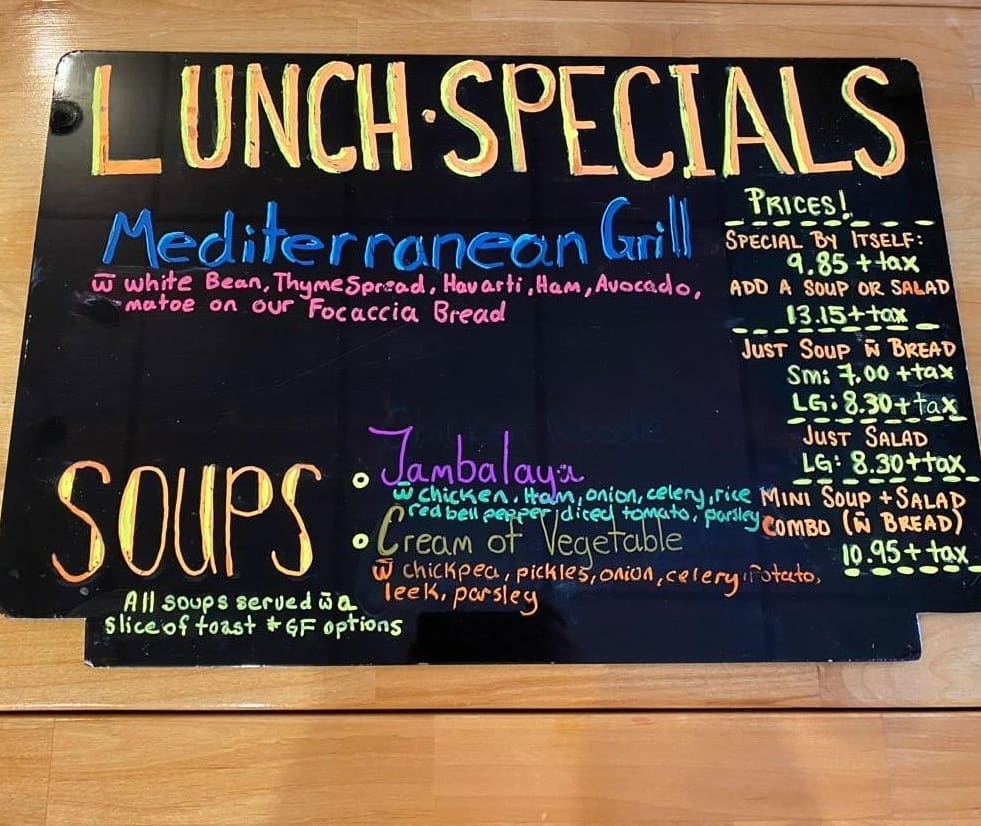 LUNCH·SPECIALS
Mediterranean Grill
w̄ White Bean, Thyme Spread, Havarti, Ham, Avocado,
matoe on our Focaccia Bread
PRICES!
SPECIAL BY ITSELF:
9.85 + tax
ADD A SOUP OR SALAD
13.15 + tax
JUST SOUP w̄ BREAD
Sm: 7.00 + tax
LG: 8.30 + tax
JUST SALAD
LG: 8.30 + tax
MINI SOUP + SALAD
COMBO (w̄ BREAD)
10.95 + tax
SOUPS
Jambalaya
w̄ chicken, Ham, onion, celery, rice
red bell pepper, diced tomato, parsley
Cream of Vegetable
w̄ chickpea, pickles, onion, celery, Potato,
leek, parsley
All soups served w̄ a
slice of toast * GF options